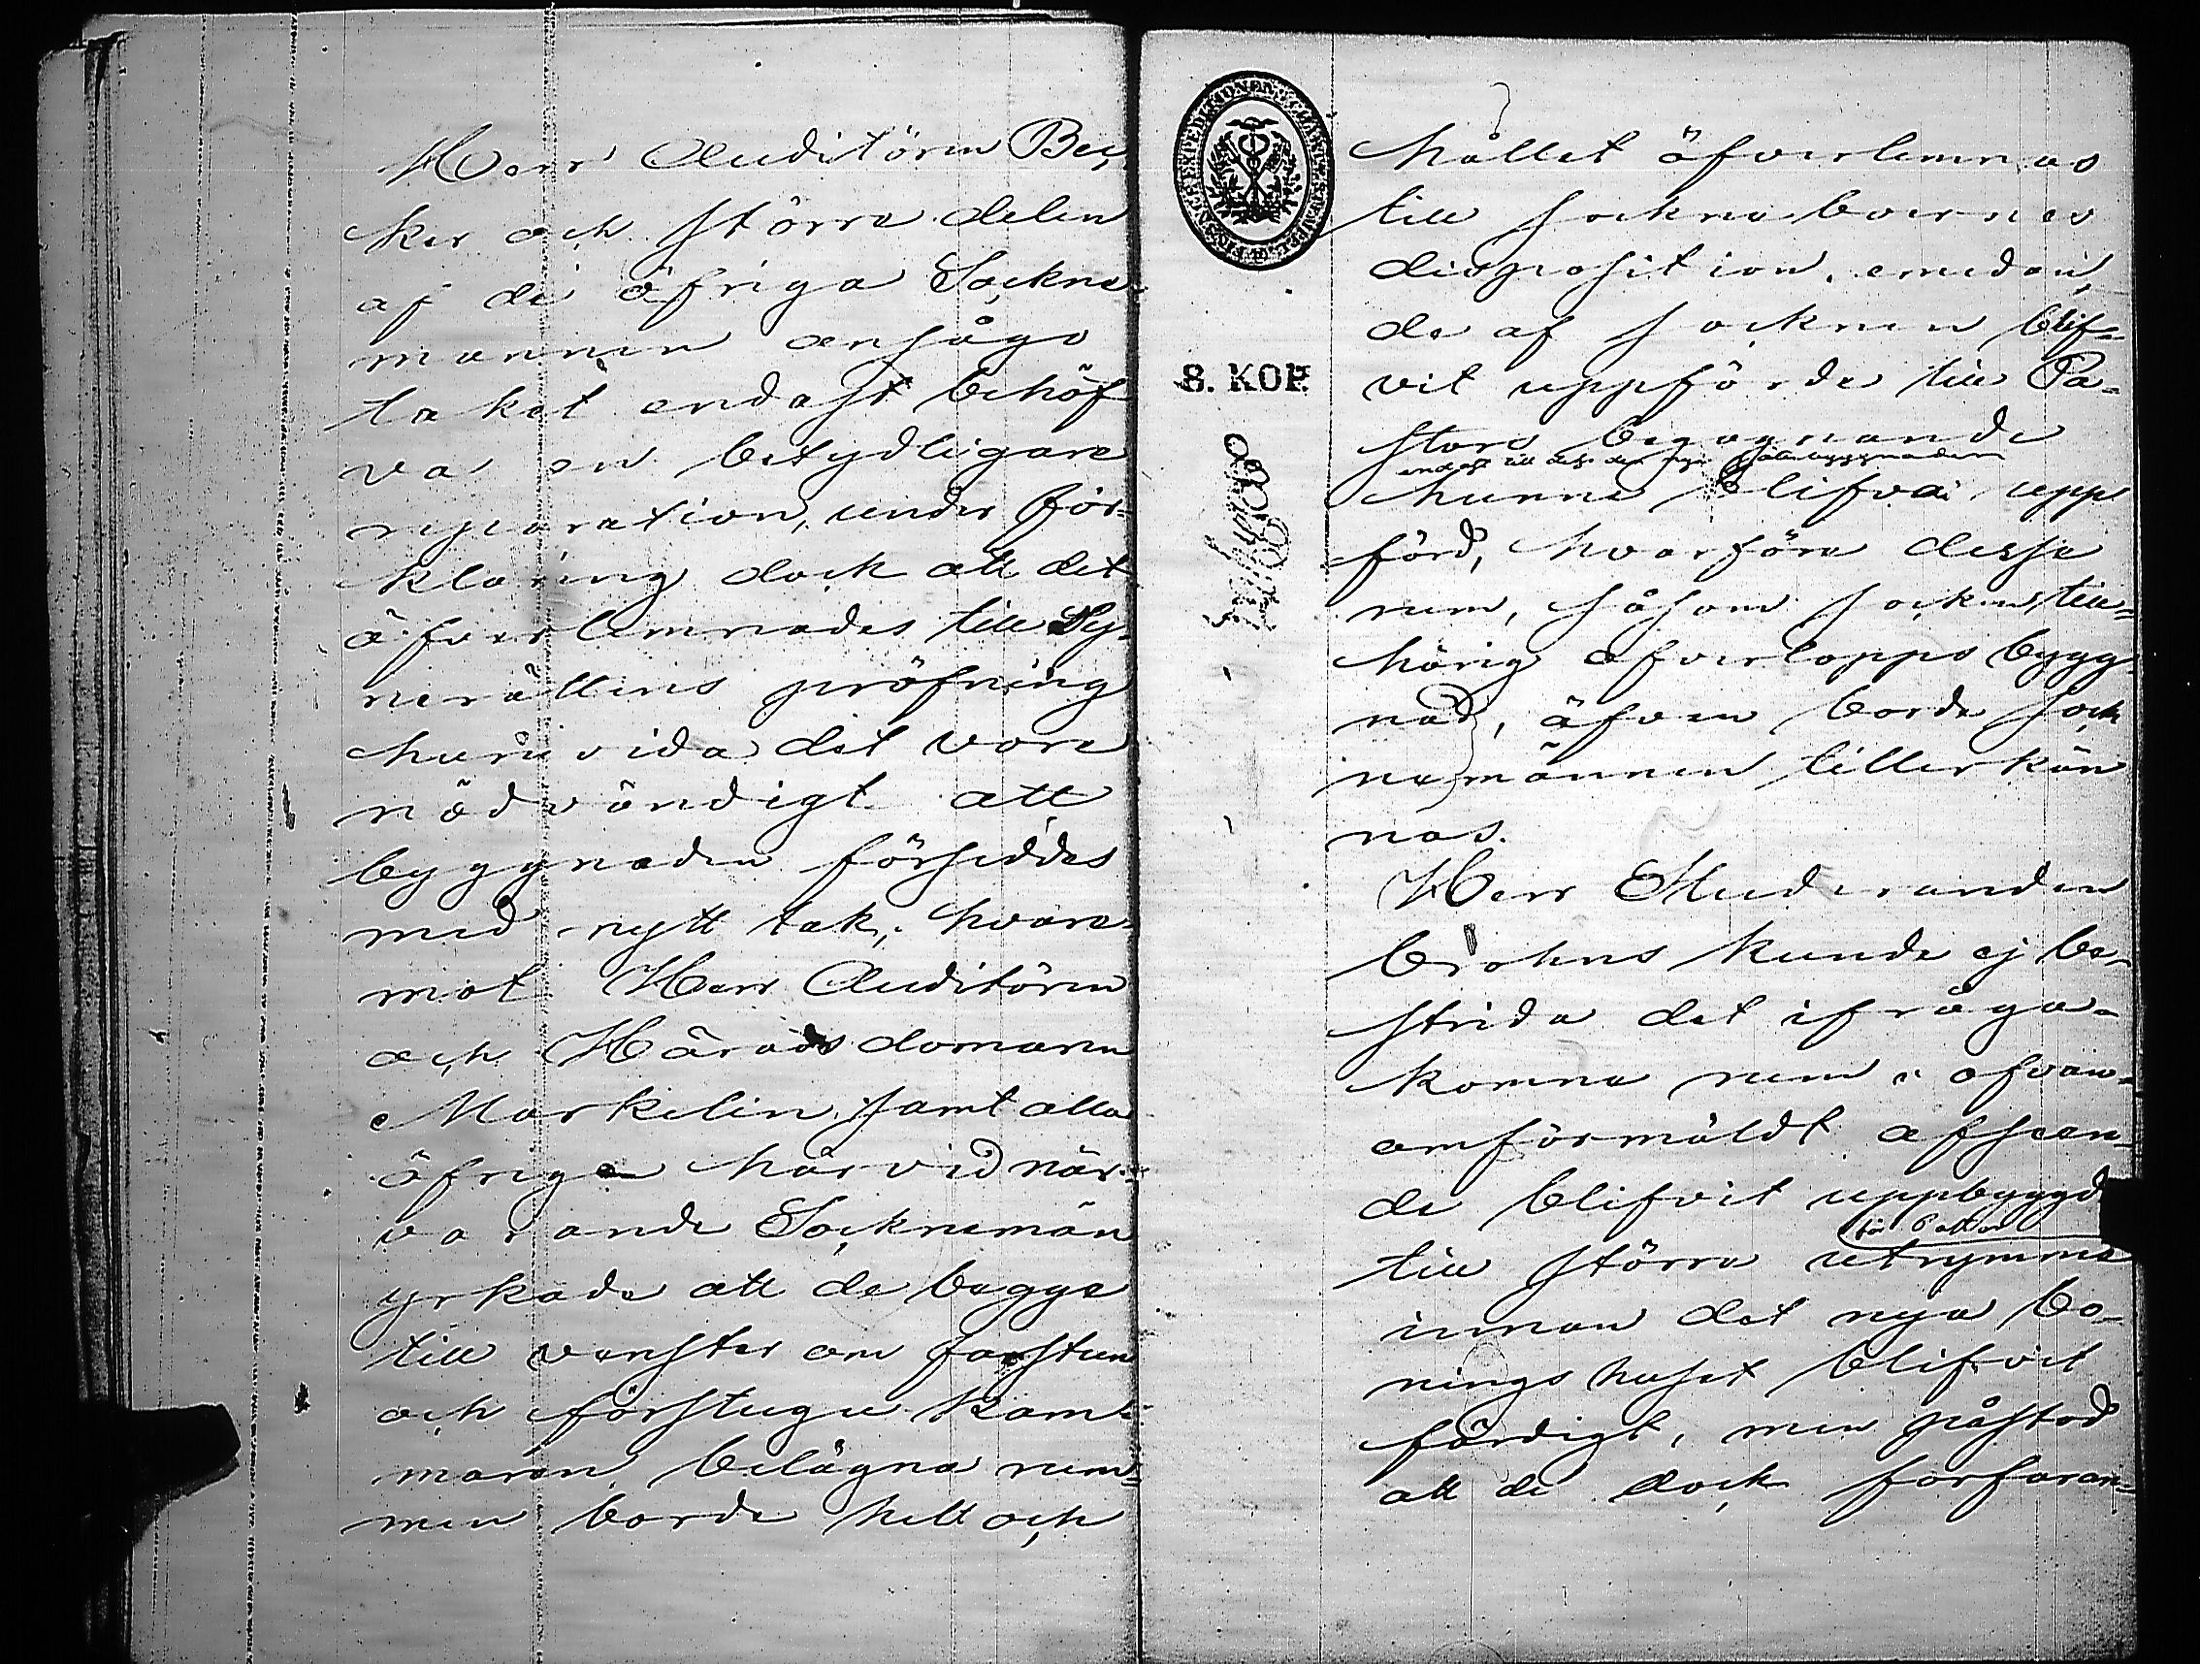 Herr Auditören Bec¬
ker och större delen
af de öfriga Sockne¬
männen ansågo
taket endast behöf
va en betydligare
reparation, under för¬
klaring dock att det
öfverlemnades till Sy¬
nerättens pröfning
huruvida det vore
nödvändigt att
byggnaden försåddes
med nytt tak, hvare¬
mot Herr Auditören
och Häradsdomaren
Markelin samt alla
öfriga härvid när¬
varande Socknemän
yrkade att de begge
till venster om farstun
och förstugu kam¬
maren belägna rum¬
men borde helt och
hållet öfverlemnas
till sockneboernes
disposition, emedan
de af socknen blif¬
vit uppförde till Pa¬
stors begagnande
endast till dess den nya byggnaden
hunne blifva upp
förd, hvarföre dessa
rum, såsom socknen till¬
hörig öfverlopps bygg¬
nad, äfven borde sock
nemännen tillerkän
nas.
Herr Studeranden
Brohns kunde ej be¬
strida det ifråga¬
komna rum i ofvan¬
omförmäldt afseen¬
de blifvit uppbyggde
för Pastor
till större utrymme
innan det nya bo¬
ningshuset blifvit
färdigt, men påstod
att de dock forfaran¬
8. KOP.